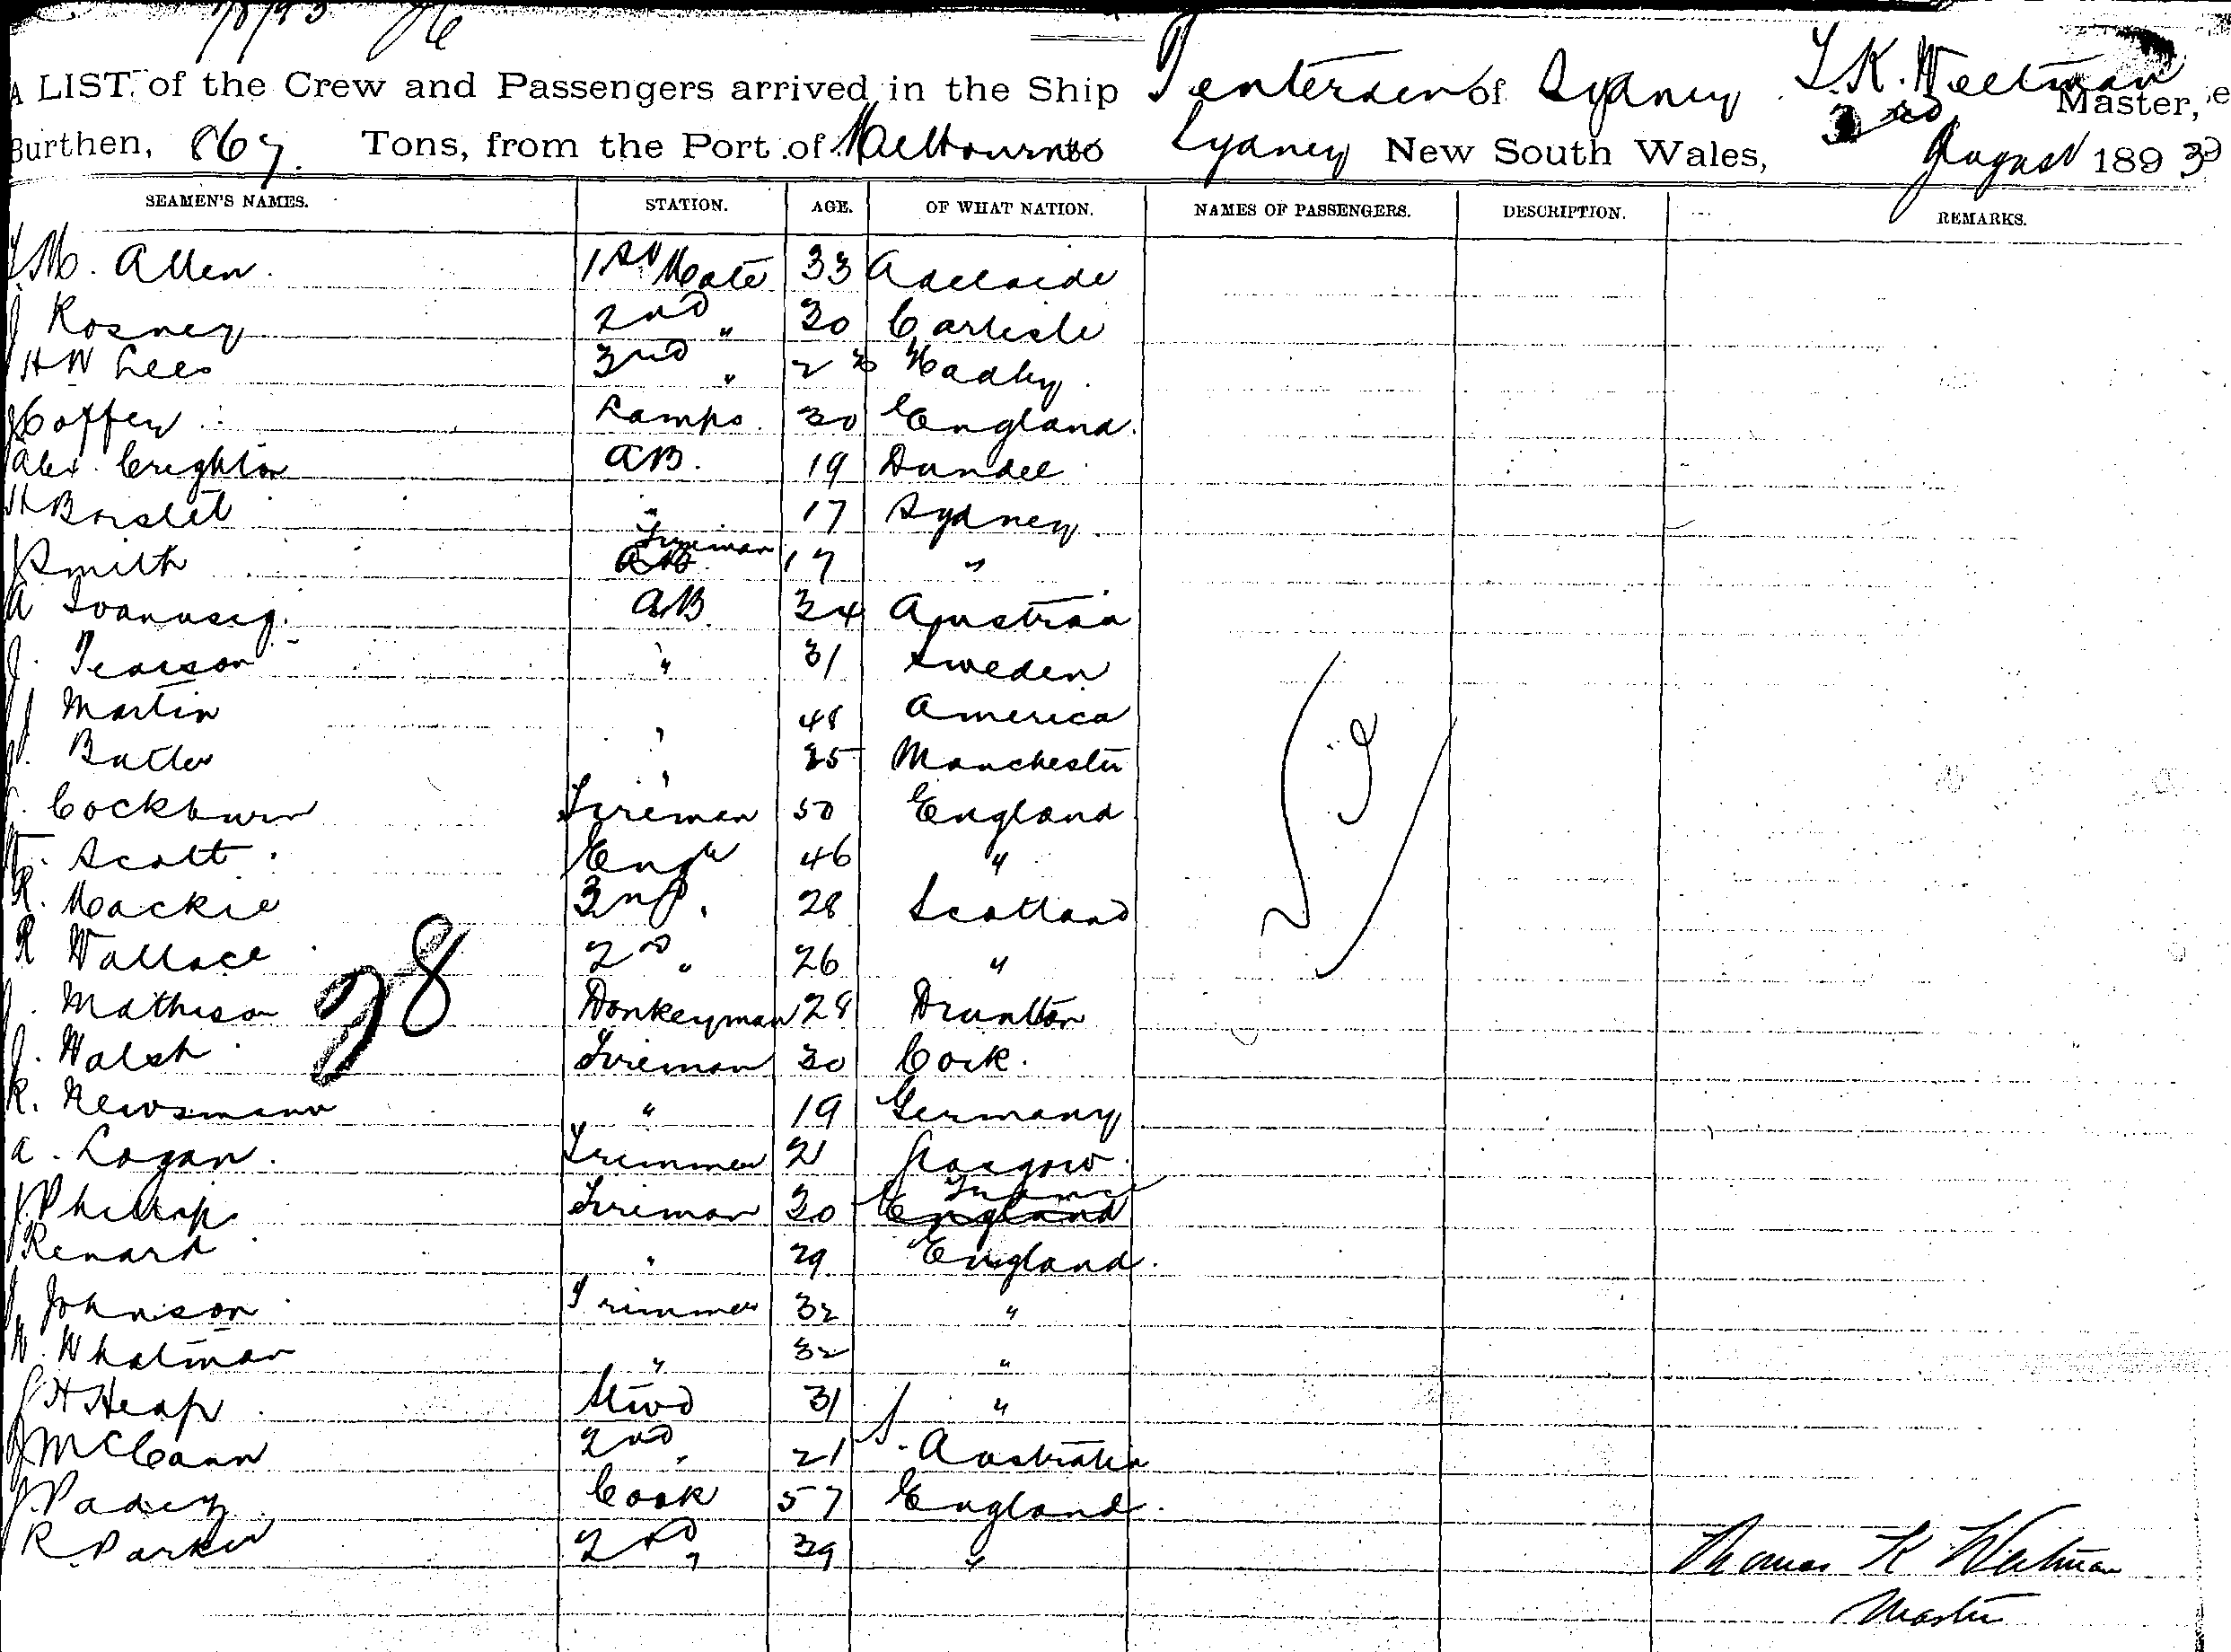 1/8/93
A LIST of the Crew and Passengers arrived in the Ship Tenterden of Sydney T. K. Weetman Master,
Burthen, 867 Tons, from the Port of Melbourne to Sydney New South Wales, 3rd August 1893
SEAMEN'S NAMES. STATION. AGE. OF WHAT NATION. NAMES OF PASSENGERS. DESCRIPTION. REMARKS.
M. Allen. 1st Mate 33 Adelaide
J Rosney 2nd " 30 Carlisle
H W Lees 3rd " 23 Hadley.
Coffey Lamps. 30 England.
Alex. Crighton AB. 19 Dundee
H " 17 Sydney
J Smith Fireman 17 "
A AB. 34 Austria
J. Pearson " 31 Sweden
J Martin " 48 America
Butler " 25 Manchester
Cockburn Fireman 50 England
Scott. Engr 46 "
R. Mackie 3rd. 28 Scotland
R Wallace 2nd " 26 "
J. Mathison Donkeyman 28
28
J. Walsh Fireman 30 Cork.
R. Newsmann " 19 Germany
A. Logan. Trimmer 21 Glasgow.
J. Phillips Fireman 30 France England
Renard " 29 England.
J. Johnson Trimmer 32 "
W. Whatman " 32 "
J H Heap Stwd 31 "
J McCann 2nd " 21 S. Australia
J. Padey Cook 57 England.
R. Parker 2nd " 39 "
Thomas K Weetman
Master